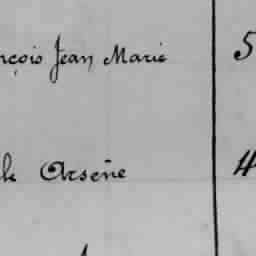 nçois Jean Marie 5
le Arsène 4